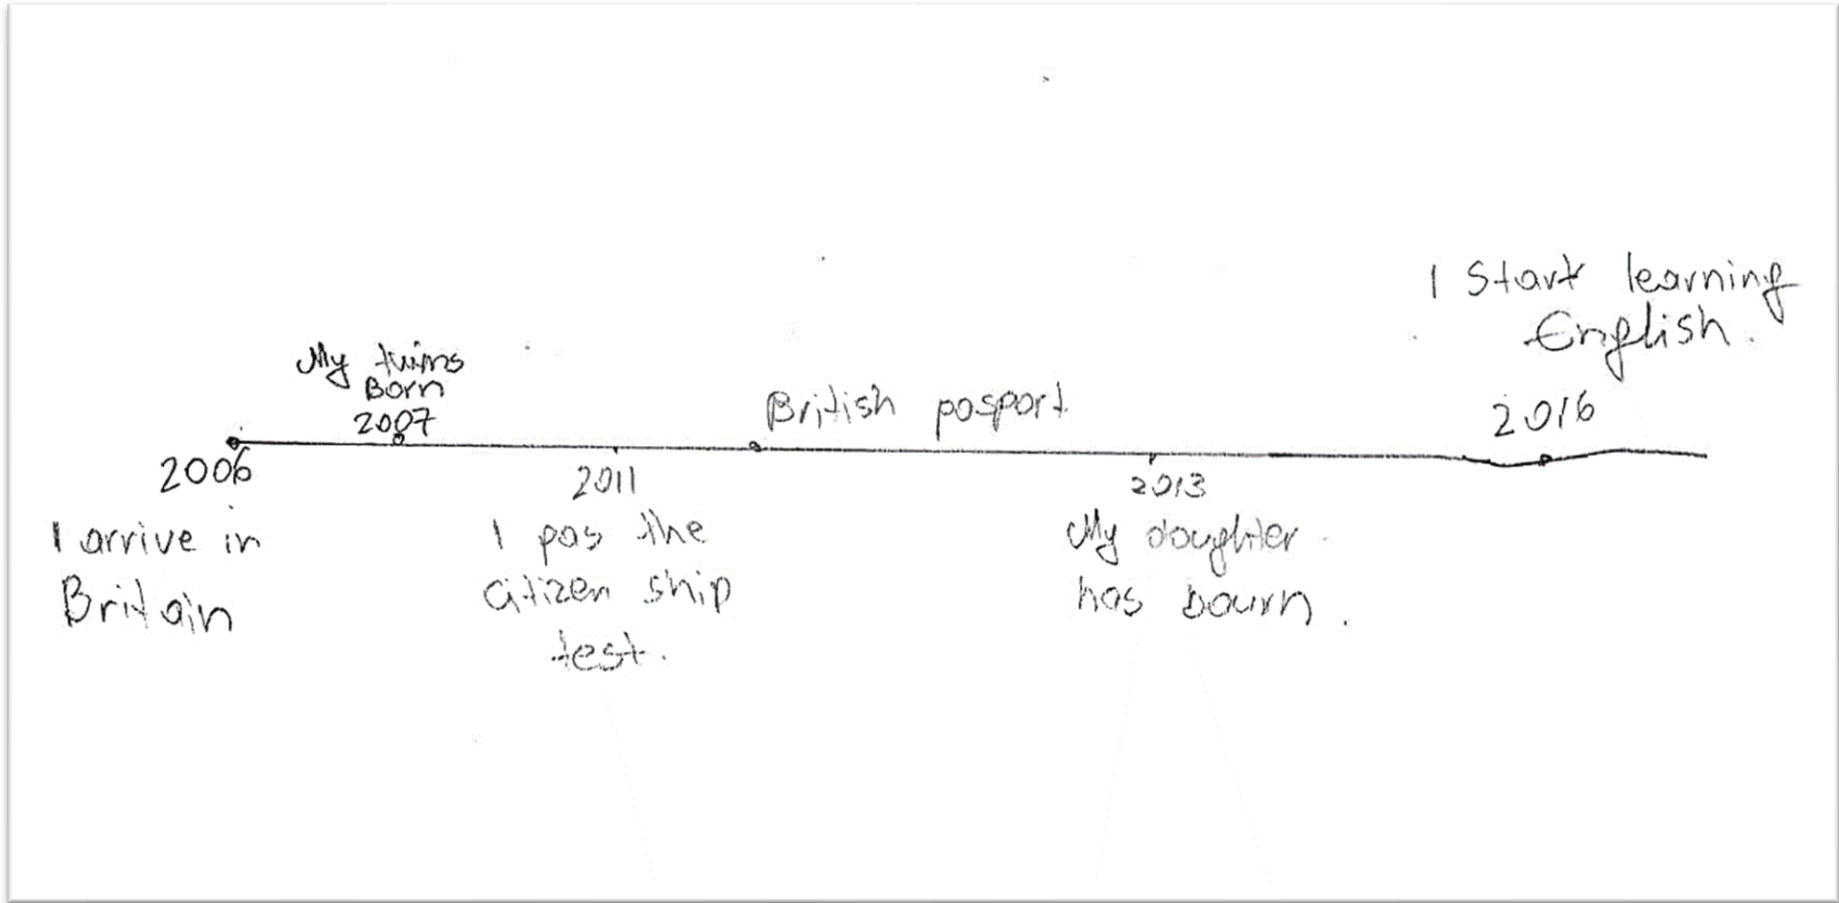 2006
I arrive in
Britain
My twins
Born
2007
2011
I pas the
Citizen ship
test.
British pasport
2013
My doughter
has bourn.
I Start learning
English.
2016